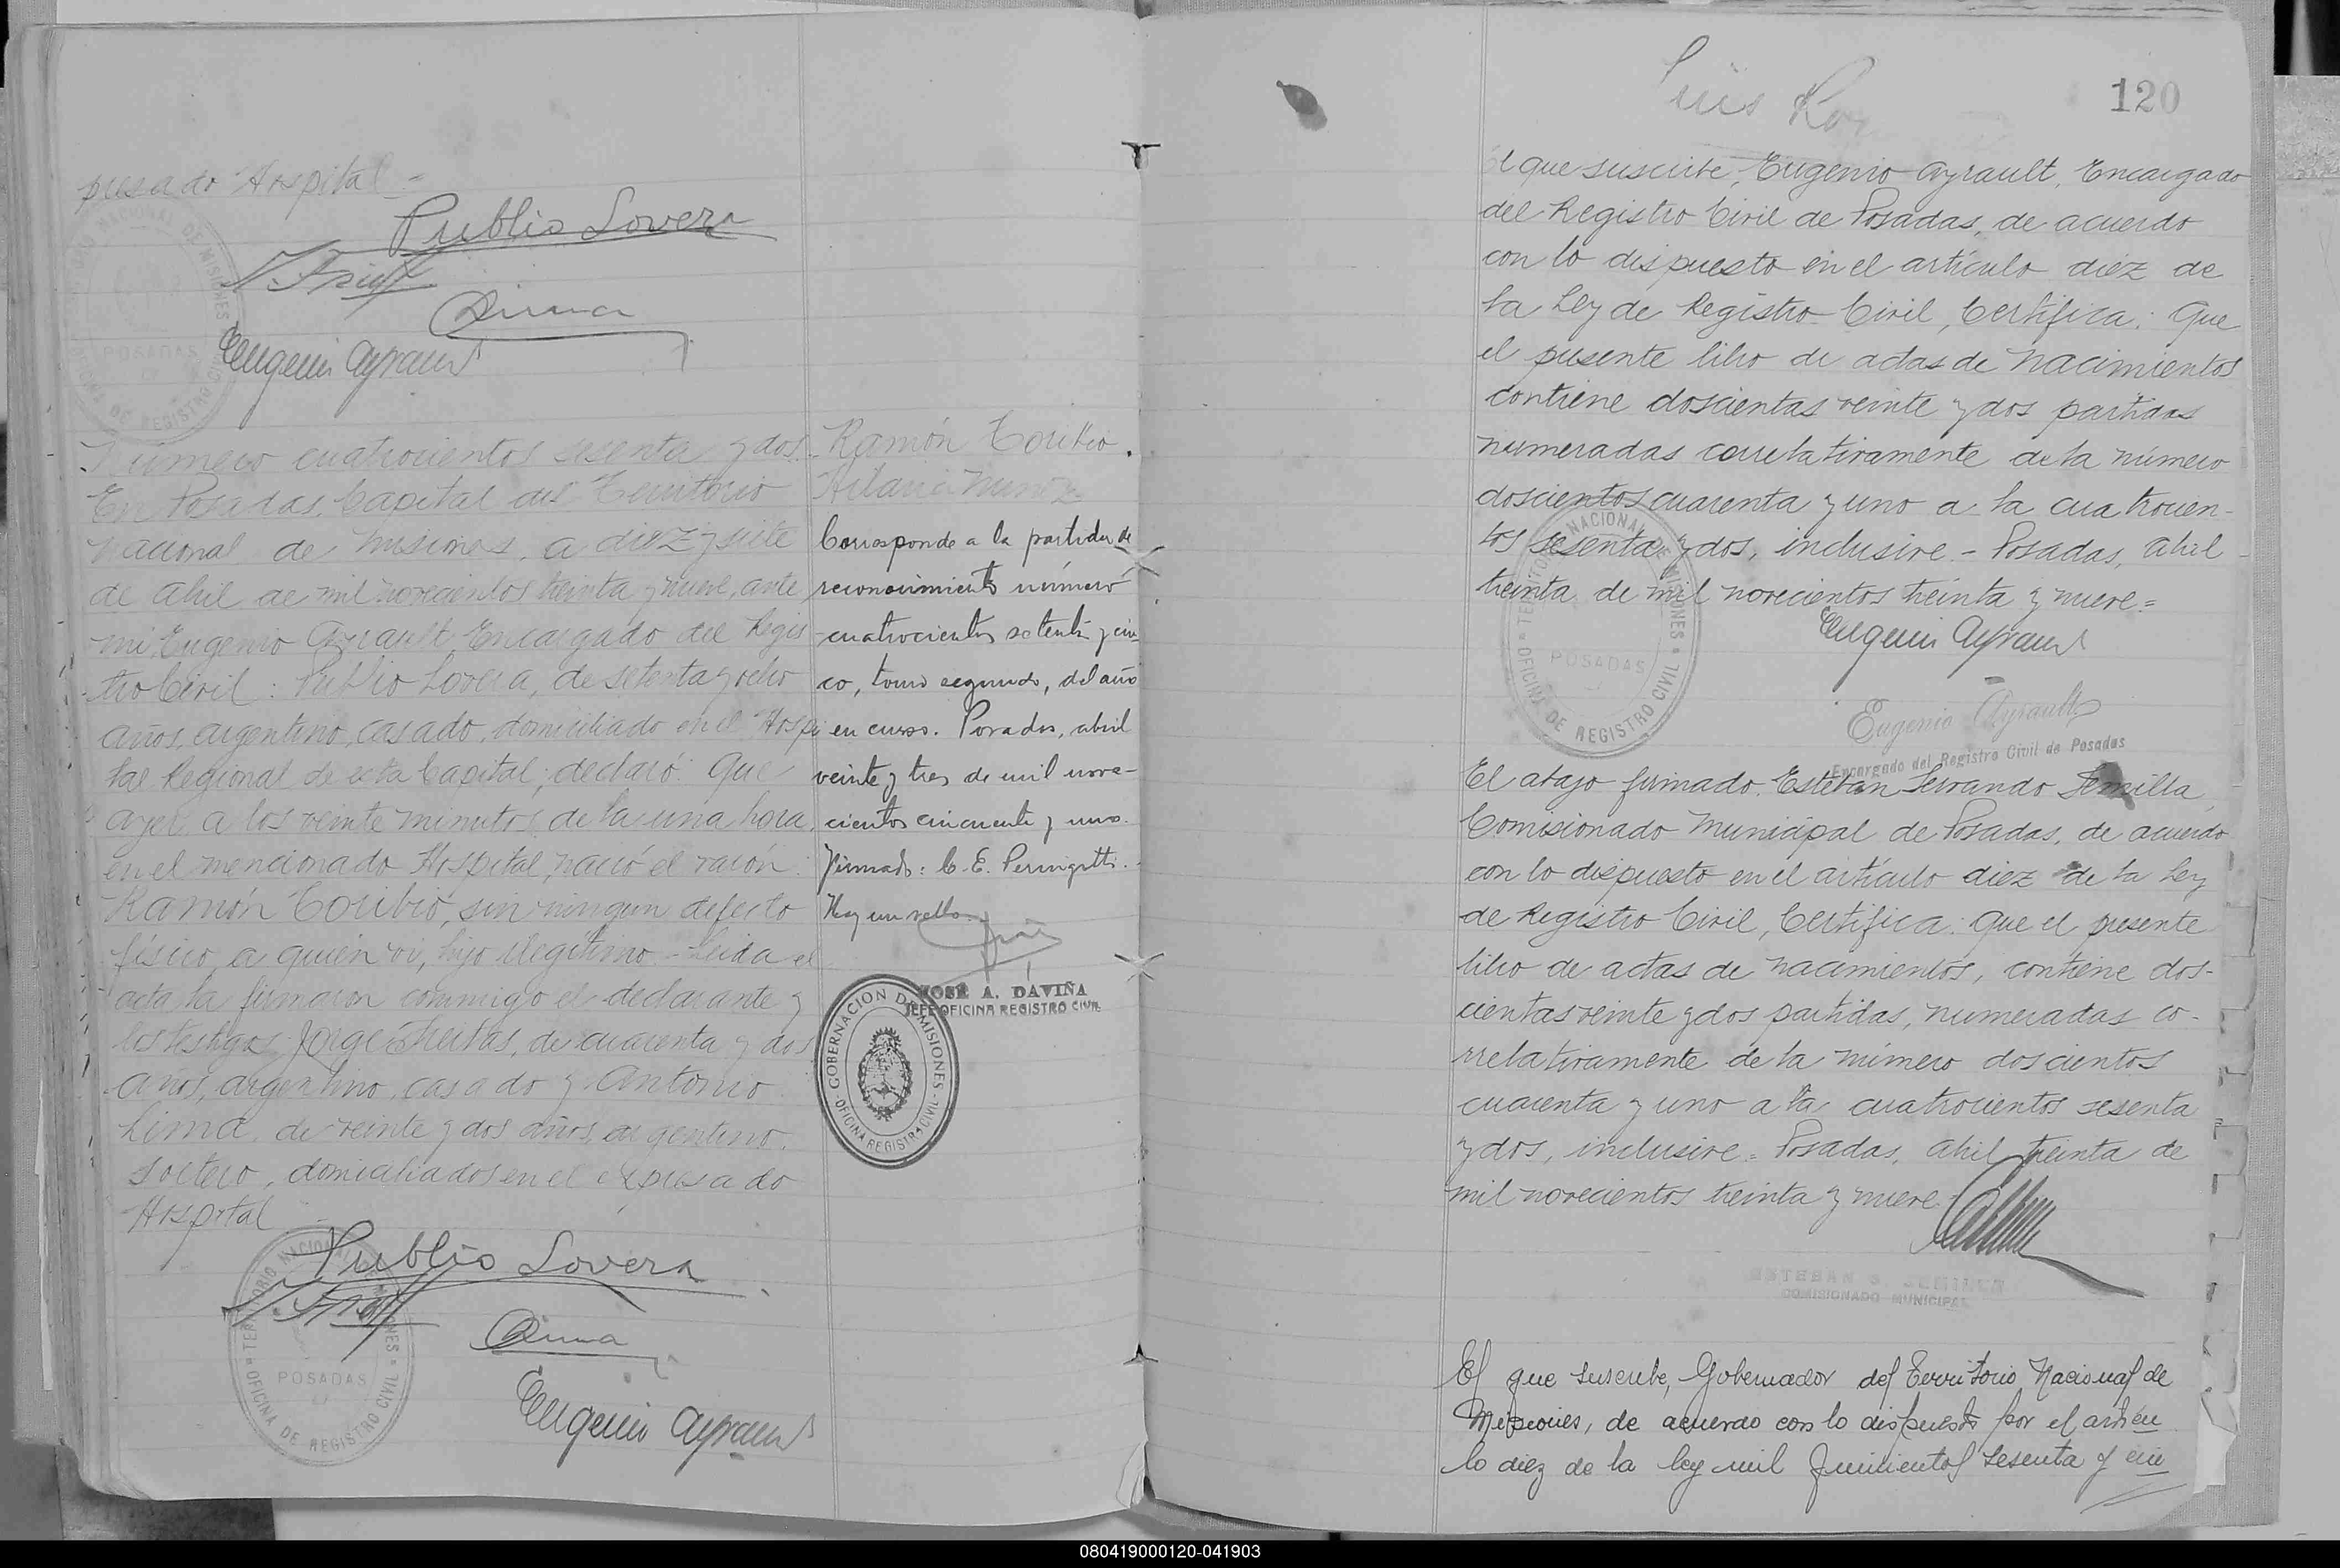 presado Hospital =
Publio Lovera
Lima
Eugenio Ayrault
Número cuatrocientos sesenta y dos
En Posadas, Capital del Territorio
Nacional de Misiones, a diez y siete
de abril de mil novecientos treinta y nueve, ante
mi, Eugenio Ayrault, Encargado del Regis
tro Civil: Publio Lovera, de setenta y ocho
años, argentino, casado, domiciliado en el Hospi
tal Regional de esta Capital; declaró: Que
ayer a los veinte minutos de la una hora,
en el mencionado Hospital, nació el varón
Ramón Toribio, sin ningun defecto
físico, a quien vi, hijo ilegítimo.- Leida el
acta la firmaron conmigo el declarante y
los testigos, Jorge Freitas, de cuarenta y dos
años, argentino, casado y Antonio
Lima, de veinte y dos años, argentino,
soltero, domiciliados en el expresado
Hospital
Publio Lovera
Lima
Eugenio Ayrault
TERRITORIO NACIONAL DE MISIONES
OFICINA DE REGISTRO CIVIL
POSADAS
Ramón Toribio.
Hilario Muñoz
Corresponde a la partida de
reconocimiento número
cuatrocientos setenta y cin
co, tomo segundo, del año
en curso. Posadas, abril
veinte y tres de mil nove-
cientos cincuenta y uno.
Firmado: C. E. Peringotti.
Hay un sello.
JOSÉ A. DAVIÑA
JEFE OFICINA REGISTRO CIVIL
GOBERNACION DE MISIONES
OFICINA REGISTRO CIVIL
Luis
120
El que suscribe, Eugenio Ayrault, Encargado
del Registro Civil de Posadas, de acuerdo
con lo dispuesto en el artículo diez de
la Ley de Registro Civil, Certifica: Que
el presente libro de actas de nacimientos
contiene doscientas veinte y dos partidas
numeradas correlativamente de la número
doscientos cuarenta y uno a la cuatrocien-
tos sesenta y dos, inclusive.- Posadas, abril
treinta de mil novecientos treinta y nueve.=
Eugenio Ayrault
TERRITORIO NACIONAL DE MISIONES
OFICINA DE REGISTRO CIVIL
POSADAS
Eugenio Ayrault
Encargado del Registro Civil de Posadas
El abajo firmado, Esteban Serrando Semilla,
Comisionado Municipal de Posadas, de acuerdo
con lo dispuesto en el artículo diez de la Ley
de Registro Civil, Certifica: Que el presente
libro de actas de nacimientos, contiene dos-
cientas veinte y dos partidas, numeradas co-
rrelativamente de la número doscientos
cuarenta y uno a la cuatrocientos sesenta
y dos, inclusive = Posadas, abril treinta de
mil novecientos treinta y nueve.
ESTEBAN S. SEMILLA
COMISIONADO MUNICIPAL
El que suscribe, Gobernador del Territorio Nacional de
Misiones, de acuerdo con lo dispuesto por el artícu
lo diez de la ley mil quinientos sesenta y cin
080419000120-041903